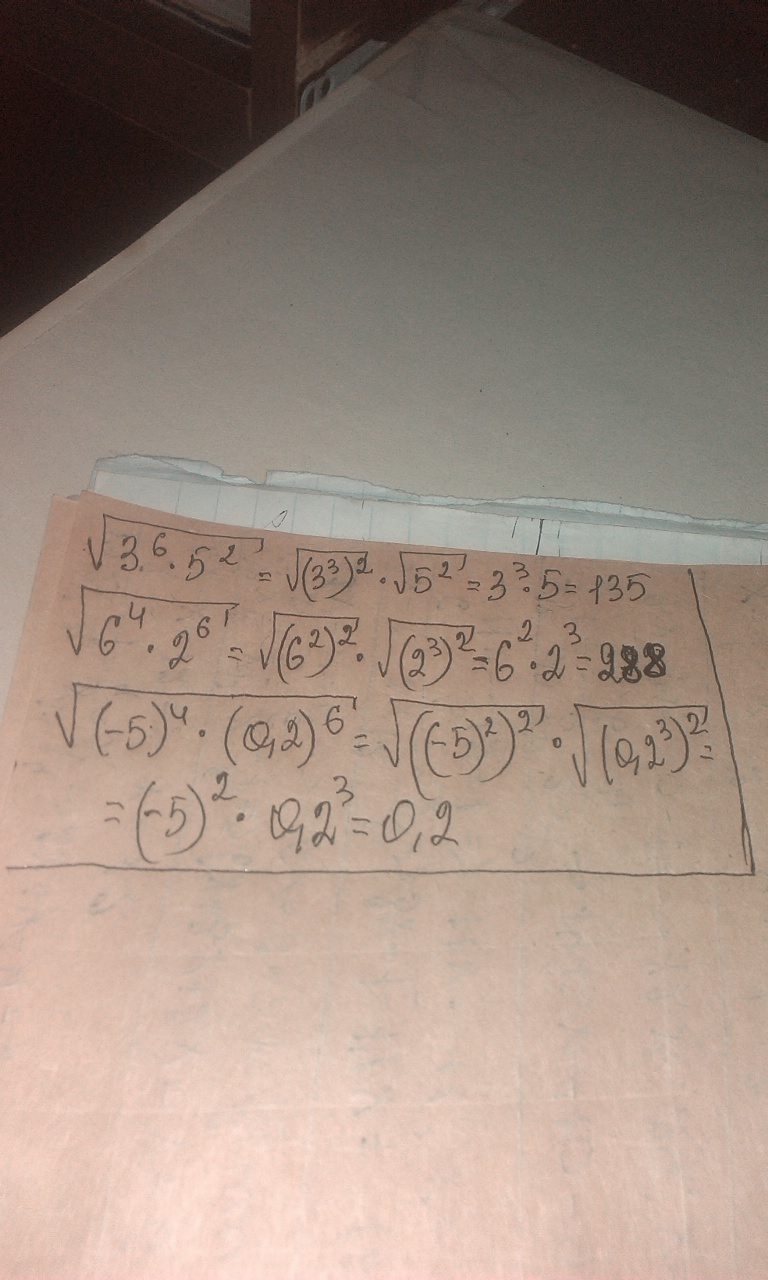 √(3⁶·5²) = √(3³)²·√5² = 3³·5 = 135
√(6⁴·2⁶) = √(6²)²·√(2³)² = 6²·2³ = 288
√((-5)⁴·(0,2)⁶) = √((-5)²)²·√(0,2³)² =
= (-5)²·0,2³ = 0,2